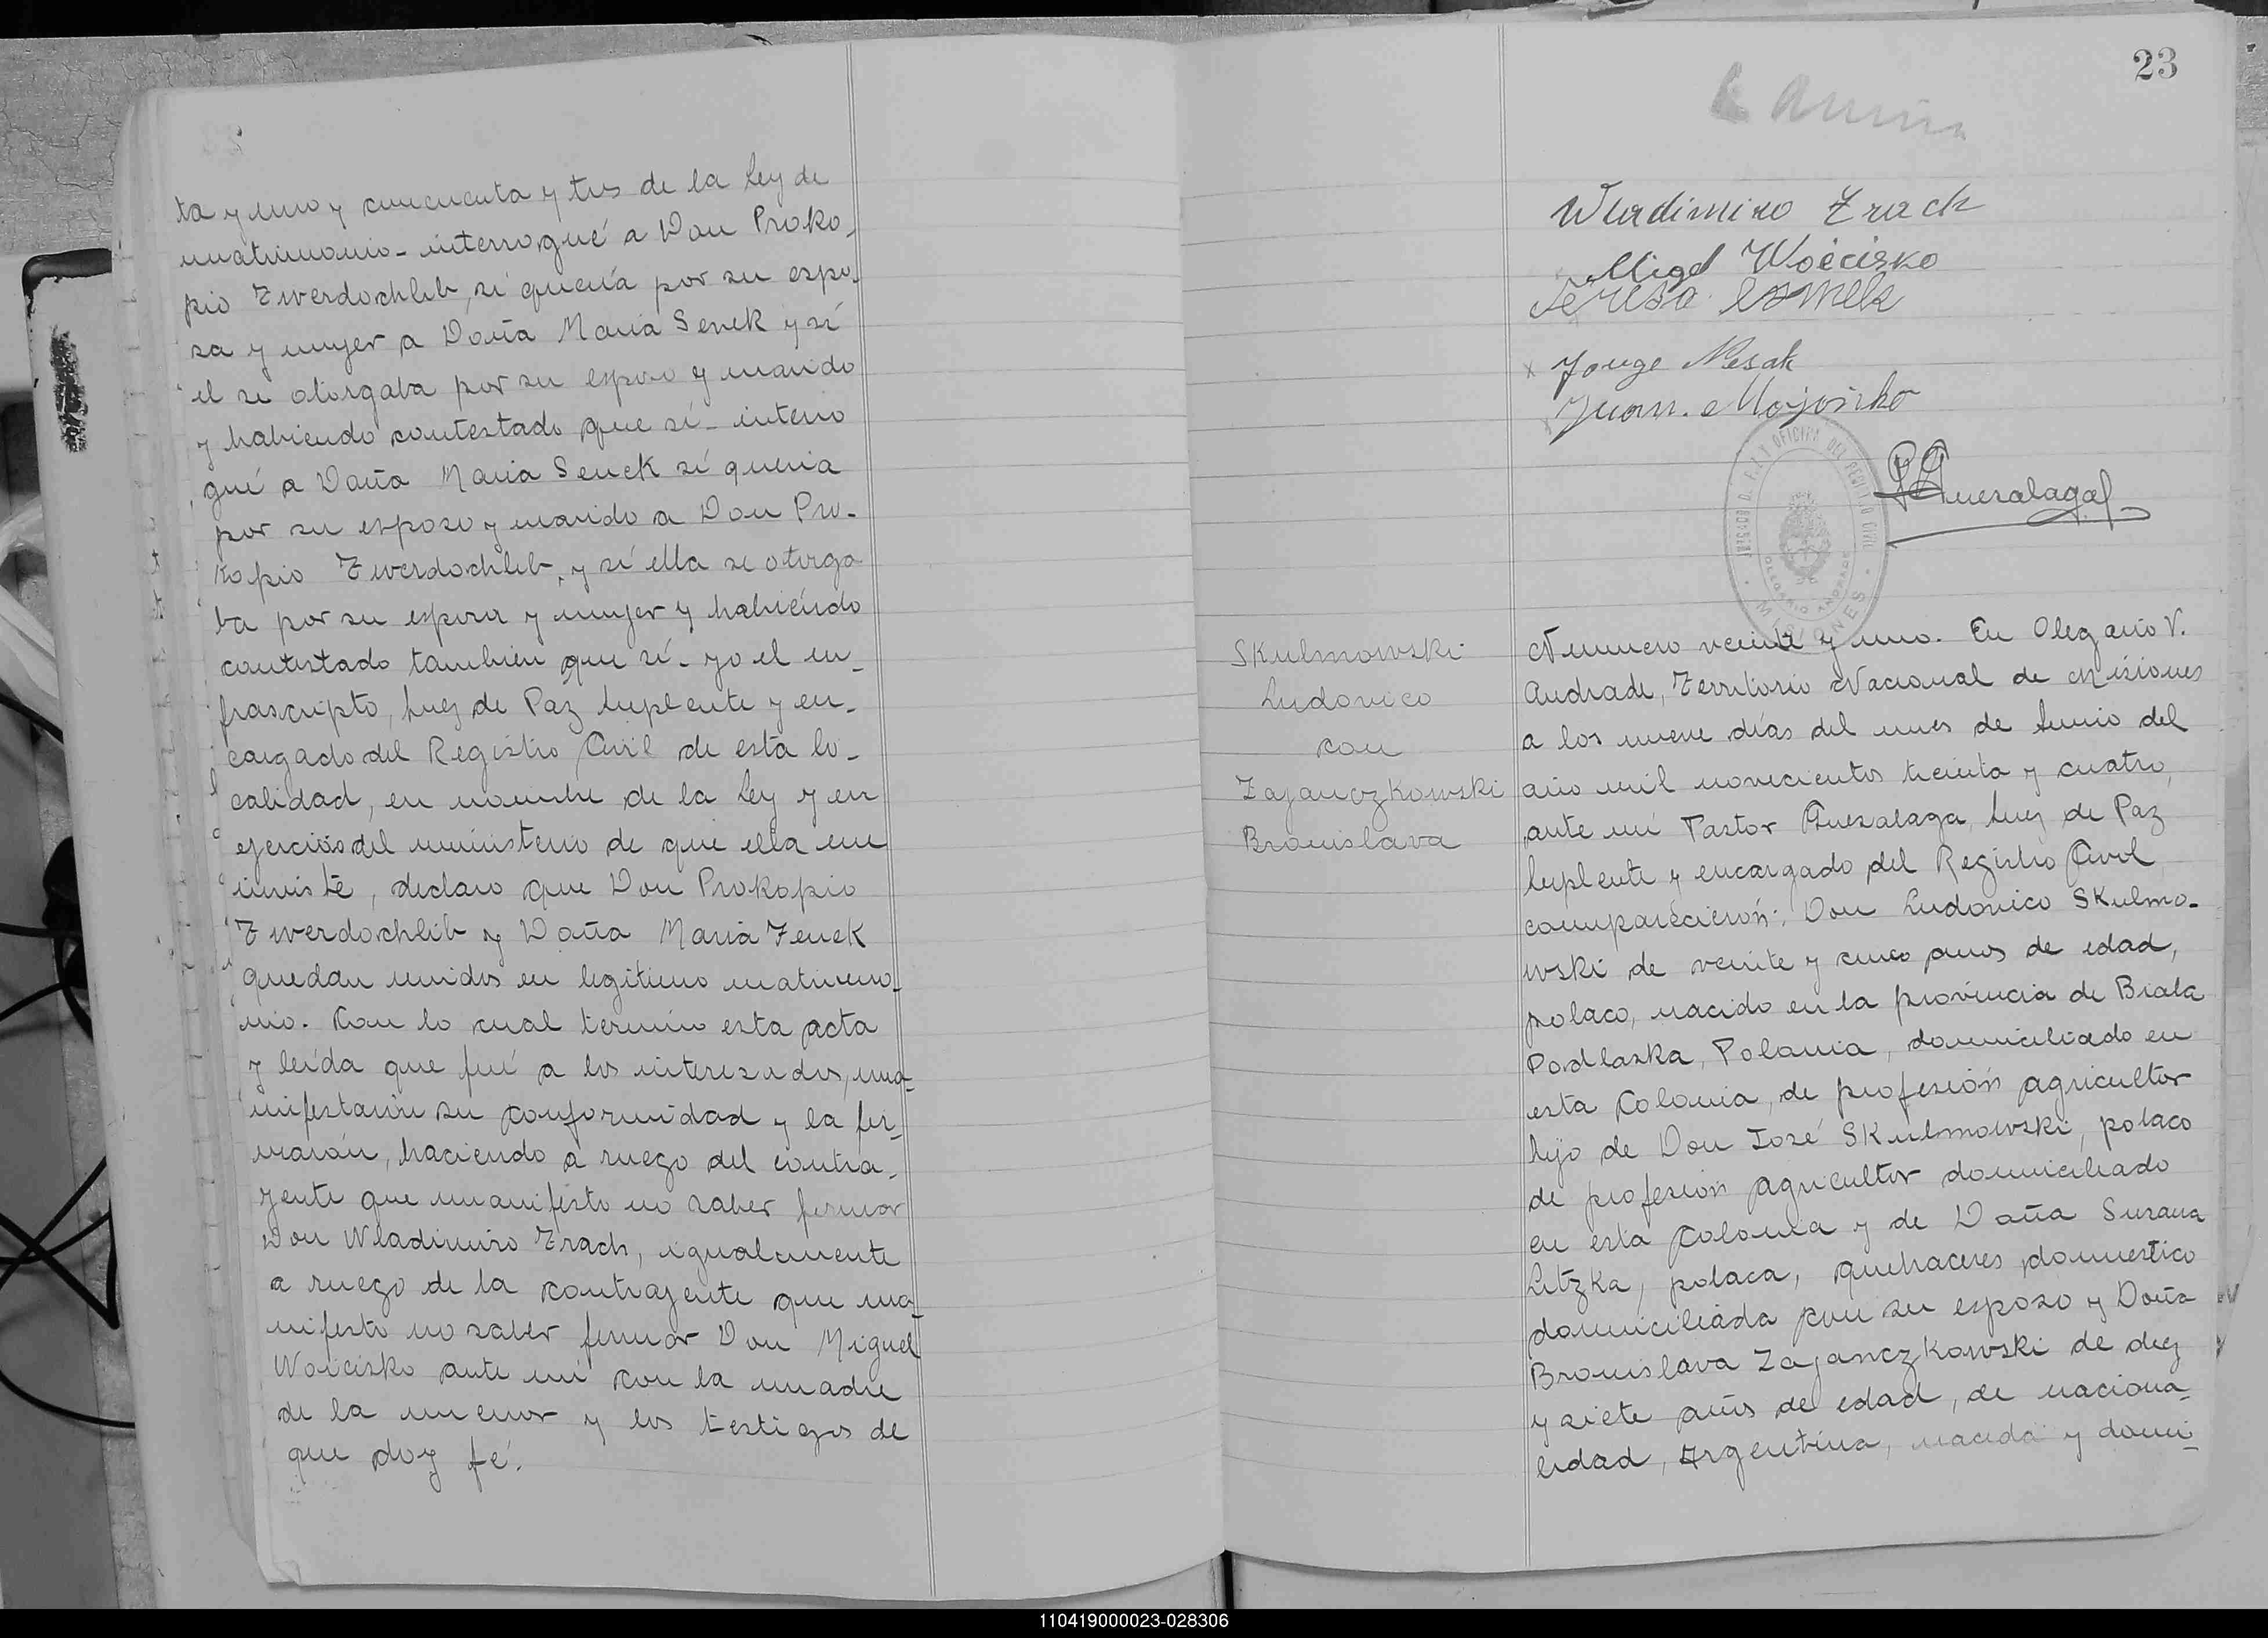 ta y uno y cincuenta y tres de la Ley de
matrimonio - interrogué a Don Proko-
pio Twerdochlib, si quería por su espo-
sa y mujer a Doña Maria Senek y si
el se otorgaba por su esposo y marido
y habiendo contestado que sí - interro
gué a Doña Maria Senek si queria
por su esposo y marido a Don Pro-
kopio Twerdochlib, y si ella se otorga
ba por su esposa y mujer y habiendo
contestado también que sí - yo el in-
frascripto, Juez de Paz Suplente y en-
cargado del Registro Civil de esta lo-
calidad, en nombre de la Ley y en
ejercicio del ministerio de que ella me
inviste, declaro que Don Prokopio
Twerdochlib y Doña Maria Zenek
quedan unidos en legitimo matrimo-
nio. Con lo cual termino esta acta
y leída que fué a los interesados, ma-
nifestarón su conformidad y la fir-
marón, haciendo a ruego del contra-
yente que manifesto no saber firmar
Don Wladimiro Zrach, igualmente
a ruego de la contrayente que ma-
nifesto no saber firmar Don Miguel
Woicisko ante mi con la madre
de la menor y los testigos de
que doy fé.
23
Wladimiro Zrach
Migel Woicisko
Teresa
Jorge Mesak
Juan
PGuesalaga
JUZGADO D. PAZ Y OFICINA DEL REGISTRO CIVIL
OLEGARIO ANDRADE
MISIONES
Skulmowski
Ludovico
con
Zajanczkowski
Bronislava
Numero veinte y uno. En Olegario V.
Andrade, Territorio Nacional de Misiones
a los nueve días del mes de Junio del
año mil novecientos treinta y cuatro,
ante mi Pastor Guesalaga, Juez de Paz
Suplente y encargado del Registro Civil,
comparecierón: Don Ludovico Skulmo-
wski de veinte y cinco años de edad,
polaco, nacido en la provincia de Biala
Podlaska, Polonia, domiciliado en
esta Colonia, de profesión agricultor
hijo de Don José Skulmowski, polaco
de profesión agricultor domiciliado
en esta Colonia y de Doña Susana
Litzka, polaca, quehaceres domestico
domiciliada con su esposo y Doña
Bronislava Zajanczkowski de diez
y siete años de edad, de naciona-
lidad, Argentina, nacida y domi-
110419000023-028306